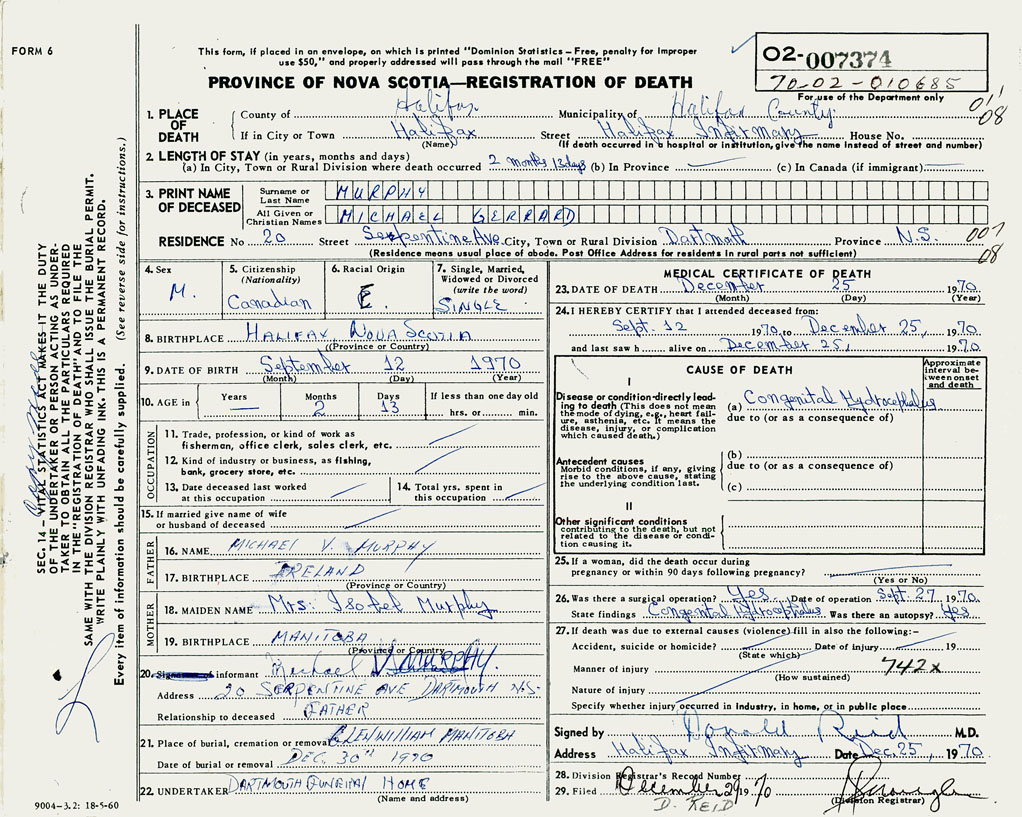 FORM 6
This form, if placed in an envelope, on which is printed "Dominion Statistics – Free, penalty for improper
use $50," and properly addressed will pass through the mail "FREE"
PROVINCE OF NOVA SCOTIA—REGISTRATION OF DEATH
02-007374
70-02-010685
For use of the Department only
011
08
1. PLACE OF DEATH
County of Halifax Municipality of Halifax County
If in City or Town Halifax Street Halifax Infirmary House No.
(Name) (If death occurred in a hospital or institution, give the name instead of street and number)
2. LENGTH OF STAY (in years, months and days)
(a) In City, Town or Rural Division where death occurred 2 months 13 days (b) In Province — (c) In Canada (if immigrant) —
3. PRINT NAME OF DECEASED
Surname or Last Name MURPHY
All Given or Christian Names MICHAEL GERRARD
RESIDENCE No 20 Street Serpentine Ave. City, Town or Rural Division Dartmouth Province N.S.
007
08
(Residence means usual place of abode. Post Office Address for residents in rural parts not sufficient)
4. Sex M.
5. Citizenship (Nationality) Canadian
6. Racial Origin E.
7. Single, Married, Widowed or Divorced (write the word) SINGLE
8. BIRTHPLACE HALIFAX NOVA SCOTIA
(Province or Country)
9. DATE OF BIRTH September 12 1970
(Month) (Day) (Year)
10. AGE in Years — Months 2 Days 13 If less than one day old hrs. or min.
OCCUPATION
11. Trade, profession, or kind of work as
fisherman, office clerk, sales clerk, etc.
12. Kind of industry or business, as fishing,
bank, grocery store, etc.
13. Date deceased last worked
at this occupation
14. Total yrs. spent in
this occupation
15. If married give name of wife
or husband of deceased
FATHER
16. NAME MICHAEL V. MURPHY
17. BIRTHPLACE IRELAND
(Province or Country)
MOTHER
18. MAIDEN NAME Mrs: Isobel Murphy
19. BIRTHPLACE MANITOBA
(Province or Country)
20. informant Michael V. MURPHY.
Address 20 SERPENTINE AVE DARTMOUTH N.S.
Relationship to deceased FATHER
21. Place of burial, cremation or removal GLENWILLIAM MANITOBA
Date of burial or removal DEC. 30TH 1970
22. UNDERTAKER DARTMOUTH FUNERAL HOME
(Name and address)
9004–3.2: 18-5-60
MEDICAL CERTIFICATE OF DEATH
23. DATE OF DEATH December 25 1970
(Month) (Day) (Year)
24. I HEREBY CERTIFY that I attended deceased from:
Sept. 12 1970, to December 25, 1970
and last saw h alive on December 25, 1970
CAUSE OF DEATH
Approximate interval between onset and death
I
Disease or condition directly leading to death (This does not mean the mode of dying, e.g., heart failure, asthenia, etc. It means the disease, injury, or complication which caused death.)
(a) Congenital Hydrocephalus
due to (or as a consequence of)
Antecedent causes
Morbid conditions, if any, giving rise to the above cause, stating the underlying condition last.
(b)
due to (or as a consequence of)
(c)
II
Other significant conditions
contributing to the death, but not related to the disease or condition causing it.
25. If a woman, did the death occur during
pregnancy or within 90 days following pregnancy?
(Yes or No)
26. Was there a surgical operation? Yes Date of operation Sept. 27 1970.
State findings Congenital Hydrocephalus Was there an autopsy? Yes
27. If death was due to external causes (violence) fill in also the following:–
Accident, suicide or homicide? Date of injury 19
(State which)
Manner of injury 742x
(How sustained)
Nature of injury
Specify whether injury occurred in industry, in home, or in public place
Signed by Donald Reid M.D.
Address Halifax Infirmary Date Dec. 25, 1970
28. Division Registrar's Record Number
29. Filed December 29 1970
D. REID
(Division Registrar)
SEC. 14 – VITAL STATISTICS ACT MAKES IT THE DUTY
OF THE UNDERTAKER OR PERSON ACTING AS UNDER-
TAKER TO OBTAIN ALL THE PARTICULARS REQUIRED
IN THE "REGISTRATION OF DEATH" AND TO FILE THE
SAME WITH THE DIVISION REGISTRAR WHO SHALL ISSUE THE BURIAL PERMIT.
WRITE PLAINLY WITH UNFADING INK. THIS IS A PERMANENT RECORD.
Every item of information should be carefully supplied. (See reverse side for instructions.)